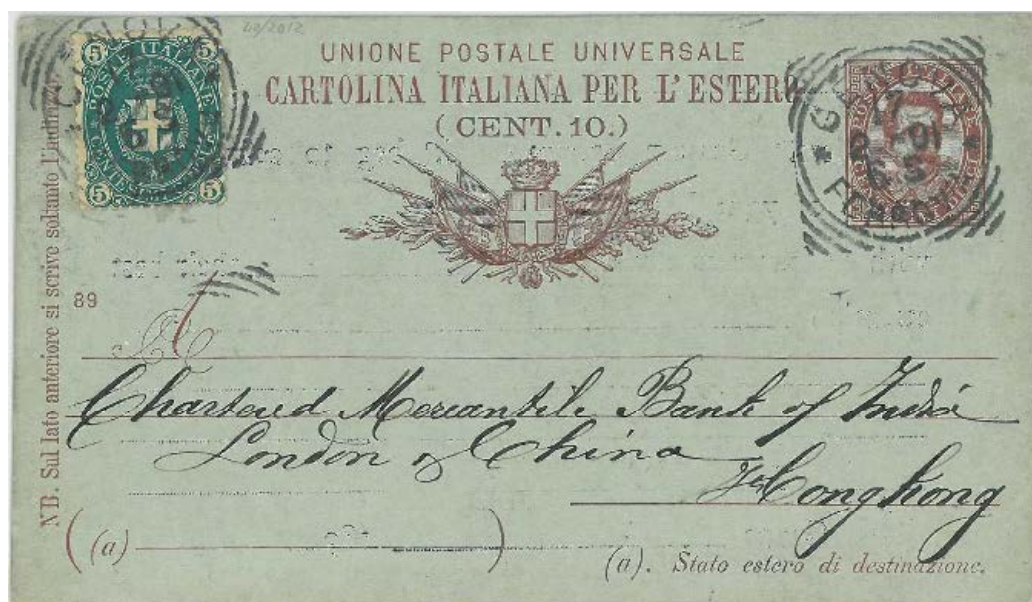 23/2012
UNIONE POSTALE UNIVERSALE
CARTOLINA ITALIANA PER L'ESTERO
(CENT. 10.)
5 POSTE ITALIANE 5
5 5
GENOVA
FERROVIA
NB. Sul lato anteriore si scrive soltanto l'indirizzo
89
A
Chartered Mercantile Bank of India
London & China
Hongkong
(a)
(a). Stato estero di destinazione.